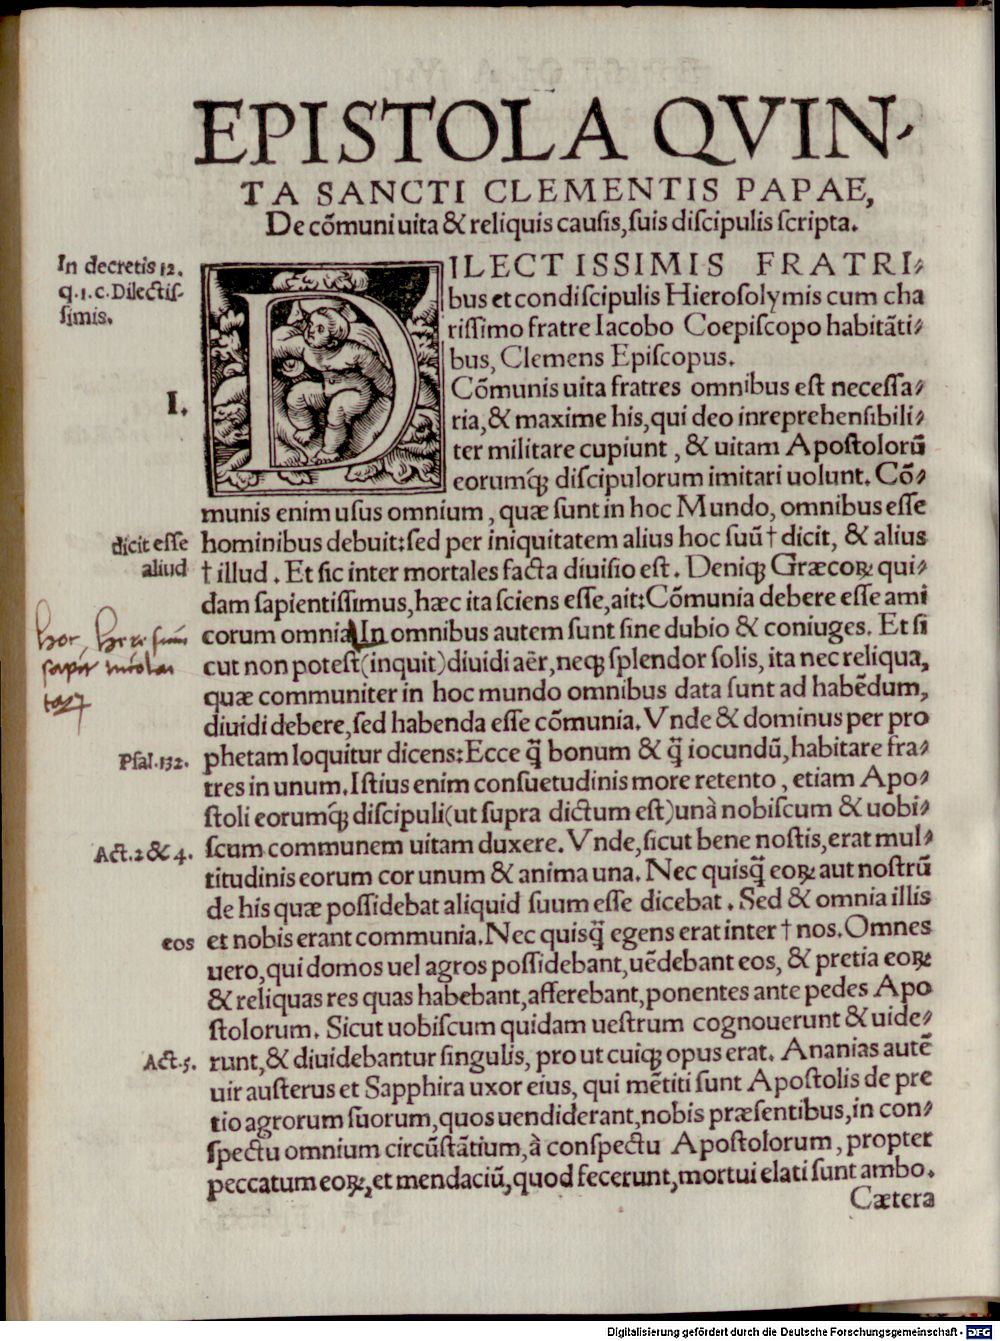 EPISTOLA QVIN-
TA SANCTI CLEMENTIS PAPAE,
De cõmuni uita & reliquis causis, suis discipulis scripta.
In decretis 12.
q.1.c.Dilectis-
simis.
DILECTISSIMIS FRATRI-
bus et condiscipulis Hierosolymis cum cha
rissimo fratre Iacobo Coepiscopo habitãti-
bus, Clemens Episcopus.
I.
Cõmunis uita fratres omnibus est necessa-
ria, & maxime his, qui deo inreprehensibili-
ter militare cupiunt, & uitam Apostolorũ
eorumq́ꝫ discipulorum imitari uolunt. Cõ-
munis enim usus omnium, quæ sunt in hoc Mundo, omnibus esse
dicit esse
aliud
hominibus debuit: sed per iniquitatem alius hoc suũ † dicit, & alius
† illud. Et sic inter mortales facta diuisio est. Deniqꝫ Græcoꝝ qui-
dam sapientissimus, hæc ita sciens esse, ait: Cõmunia debere esse ami
corum omnia. In omnibus autem sunt sine dubio & coniuges. Et si
hoc
cut non potest (inquit) diuidi aër, neqꝫ splendor solis, ita nec reliqua,
quæ communiter in hoc mundo omnibus data sunt ad habẽdum,
diuidi debere, sed habenda esse cõmunia. Vnde & dominus per pro
Psal.132.
phetam loquitur dicens: Ecce q̃̃ bonum & q̃̃ iocundũ, habitare fra-
tres in unum. Istius enim consuetudinis more retento, etiam Apo-
stoli eorumq́ꝫ discipuli (ut supra dictum est) unà nobiscum & uobi-
Act.2 & 4.
scum communem uitam duxere. Vnde, sicut bene nostis, erat mul-
titudinis eorum cor unum & anima una. Nec quisq̃̃ eoꝝ aut nostrũ
de his quæ possidebat aliquid suum esse dicebat. Sed & omnia illis
eos
et nobis erant communia. Nec quisq̃̃ egens erat inter † nos. Omnes
uero, qui domos uel agros possidebant, uẽdebant eos, & pretia eoꝝ
& reliquas res quas habebant, afferebant, ponentes ante pedes Apo
stolorum. Sicut uobiscum quidam uestrum cognouerunt & uide-
Act.5.
runt, & diuidebantur singulis, pro ut cuiqꝫ opus erat. Ananias autẽ
uir austerus et Sapphira uxor eius, qui mẽtiti sunt Apostolis de pre
tio agrorum suorum, quos uendiderant, nobis præsentibus, in con-
spectu omnium circũstãtium, à conspectu Apostolorum, propter
peccatum eoꝝ, et mendaciũ, quod fecerunt, mortui elati sunt ambo.
Cætera
Digitalisierung gefördert durch die Deutsche Forschungsgemeinschaft - DFG